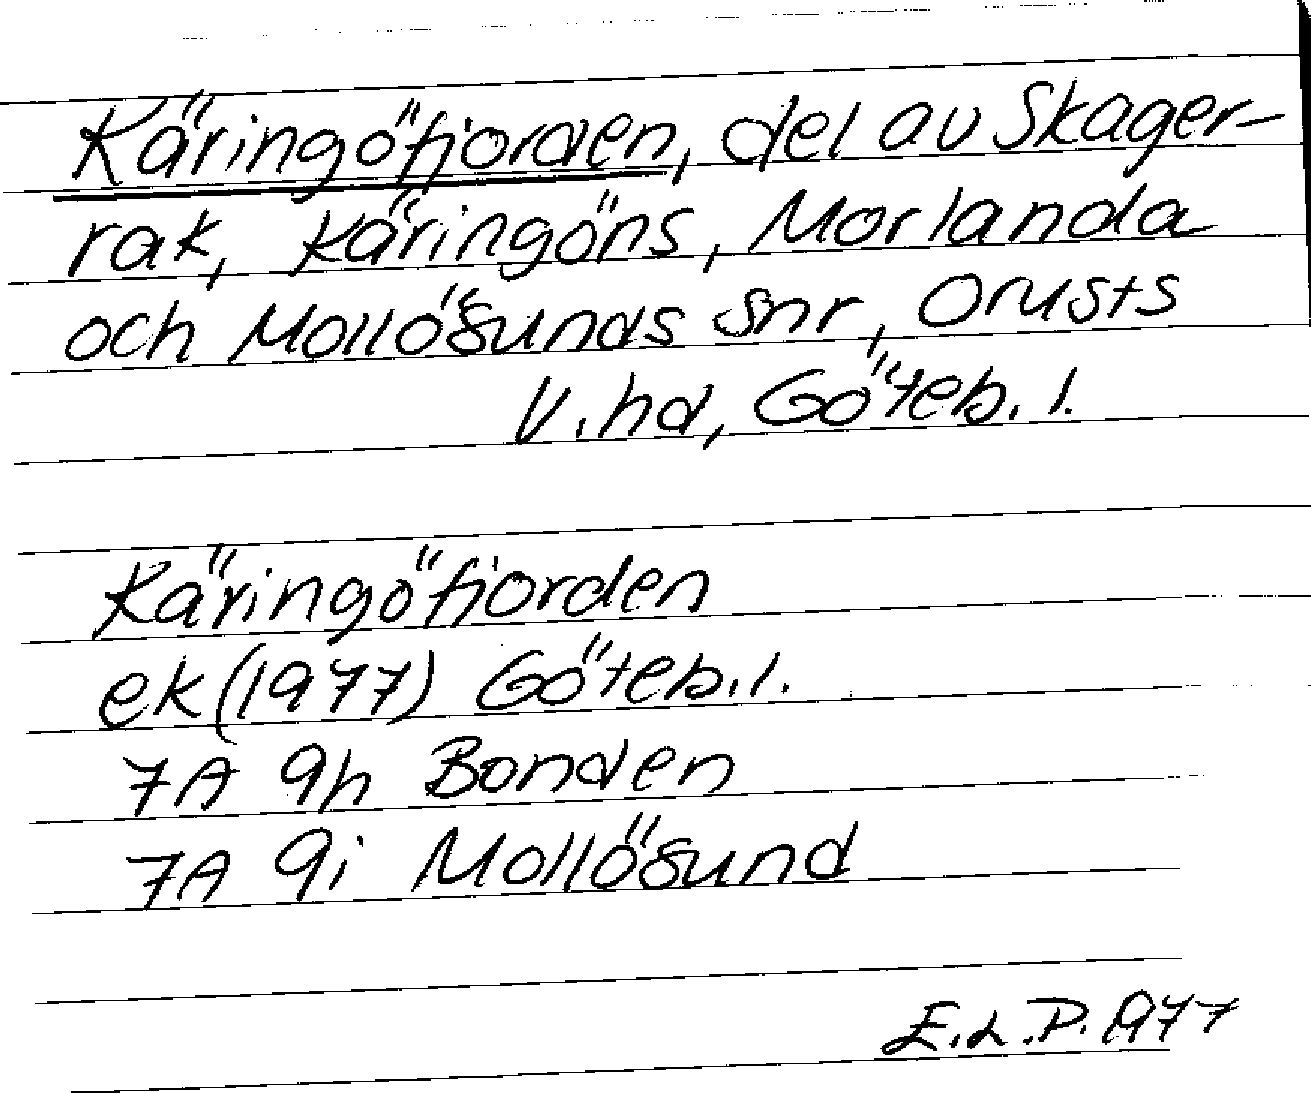 Käringöfjorden, del av Skager-
rak, Käringöns, Morlanda
och Mollösunds snr, Orusts
V. hd, Göteb. l.
Käringöfjorden
ek (1977) Göteb. l.
7A 9h Bonden
7A 9i Mollösund
E.L.P. 1977